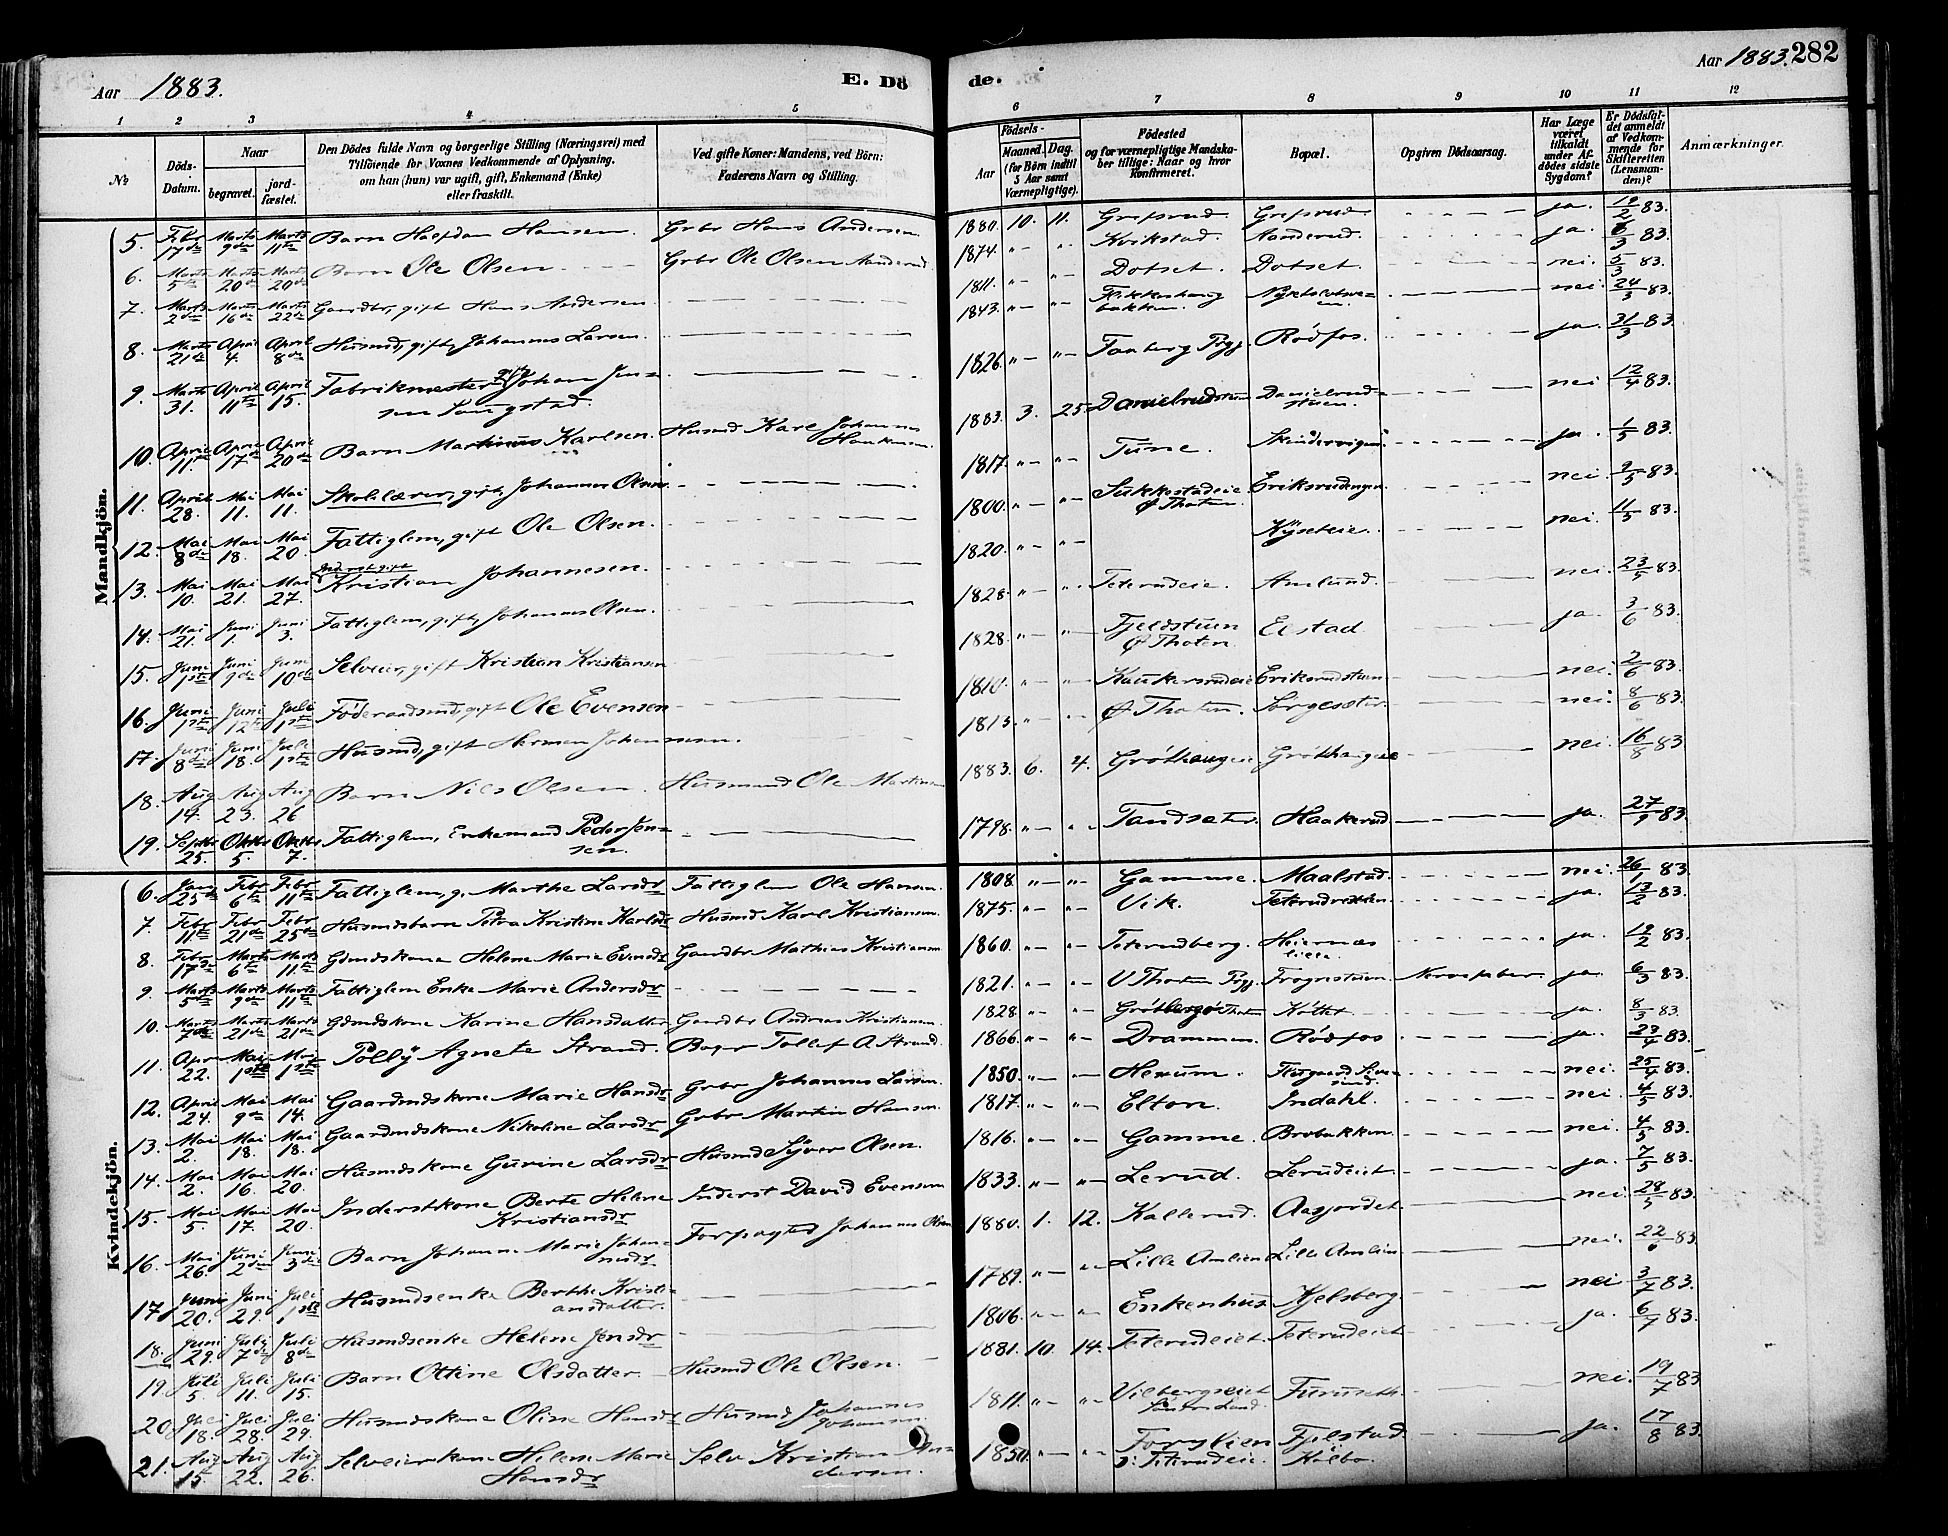 Aar 1883.
E. Dö
de.
Aar 1883.
282
1 2 3 4 5 6 7 8 9 10 11 12
№
Döds-Datum.
Naar
begravet.
jord-fæstet.
Den Dödes fulde Navn og borgerlige Stilling (Næringsvei) med
Tilföiende for Voxnes Vedkommende af Oplysning,
om han (hun) var ugift, gift, Enkemand (Enke)
eller fraskilt.
Ved gifte Koner: Mandens, ved Börn:
Faderens Navn og Stilling.
Födsels-
Aar
Maaned. Dag.
(for Börn indtil
5 Aar samt
Værnepligtige).
Födested
og for værnepligtige Mandska-
ber tillige: Naar og hvor
Konfirmeret.
Bopæl.
Opgiven Dödsaarsag.
Har Læge
været
tilkaldt
under Af-
dödes sidste
Sygdom?
Er Dödsfal-
det anmeldt
af Vedkom-
mende for
Skifteretten
(Lensman-
den)?
Anmærkninger.
Mandkjön.
5. Febr 17de Marts 9de Marts 11te Barn Halfdan Hansen. Grbr Hans Andersen 1880. 10. 11. Grefsrud. Grefsrud. ja. 19/2 83.
6. Marts 5te Marts 20de Marts 20de Barn Ole Olsen. Grbr Ole Olsen Aanderud 1874. Kvikstad. Aanderud. ja. 6/3 83.
7. Marts 2den Marts 16de Marts 22de Gaardbr, gift Hans Andersen 1811. Dotset. Dotset. nei. 5/3 83.
8. Marts 21de April 4. April 8de Husmd, gift, Johannes Larsen. 1843. nei. 24/3 83.
9. Marts 31. April 11te April 15. Fabrikmester gift Johan Jen-
sen 1826. Faaberg Prgj. Rödfos. ja. 31/3 83.
10. April 11te April 17de April 20de Barn Martinus Karlsen. Husmd Karl Johannes
Haakensen. 1883. 3. 25. Danielrudstuen Danielrud-
stuen. nei 12/4 83.
11. April 28. Mai 11. Mai 11. Skolelærer, gift, Johannes Olsen 1817. Tune. ja. 1/5 83.
12. Mai 8de Mai 18. Mai 20. Fattiglem, gift Ole Olsen. 1800. Sukkestadeie
Ø Thoten. Eriksrudengen. nei. 9/5 83.
13. Mai 10. Mai 21. Mai 27. Inderst gift
Kristian Johannesen. 1820. Kyseteie. nei. 11/5 83.
14. Mai 21. Juni 1. Juni 3. Fattiglem, gift, Johannes Olsen. 1828. Teterudeie. Amlund. nei. 23/5 83.
15. Juni 1ste Juni 9de Juni 10de Selveier, gift Kristian Kristiansen 1828. Fjeldstuen
Ø Thoten. Elstad. ja. 3/6 83.
16. Juni 1ste Juni 12te Juli 1ste Föderaadsmd, gift Ole Evensen 1810. Haukersrudeie Eriksrudstuen nei. 2/6 83.
17. Juni 8de Juni 18. Juli 1ste Husmd, gift Herman Johannesen. 1813. Ø Thoten. Sorgesæter. nei. 8/6 83.
18. Aug 14. Aug 23. Aug 26 Barn Nils Olsen. Husmand Ole Martinsen 1883. 6. 4. Gröthaugeie Gröthaugeie nei. 16/8 83
19. Septbr 25. Oktbr 5. Oktbr 7. Fattiglem, Enkemand Peder Jen-
sen. 1798. Tandsæter. Haakerud ja. 27/9 83.
Kvindekjön.
6. Jan 25de Febr 6te Febr 11te Fattiglem, g. Marthe Larsdr Fattiglem Ole Hansen. 1808. Gamme. Maalstad. nei. 26/1 83.
7. Febr 11te Febr 21de Febr 25de Husmdsbarn Petra Kristine Karlsdr Husmd Karl Kristiansen. 1875. Vik. ja. 13/2 83.
8. Febr 17de Marts 6te Marts 11te Gdmdskone Helene Marie Evensdr Gaardbr Mathias Kristiansen 1860. Teterudberg. Heiernæs
eie. ja. 19/2 83.
9. Marts 5te Marts 9de Marts 11te Fattiglem Enke Marie Andersdr 1821. V Thoten Prgj. Frognstuen. Nervefeber. ja. 6/3 83.
10. Marts 7de Marts 21de Marts 21de Gdmdskone Karine Hansdatter Gaardbr Andreas Kristiansen. 1828 ja. 8/3 83.
11. Apr 22. Mai 1ste Mai 1ste Polly Agnete Strand. Bager Tollef A Strand. 1866. Drammen. Rödfos ja. 23/4 83.
12. April 24. Mai 9de Mai 14. Gaardmdskone Marie Hansdr Grbr Johannes Larsen. 1850. Hexum. nei. 25/4 83.
13. Mai 2. Mai 18. Mai 18. Gaardmdskone Nikoline Larsdr Grbr Martin Hansen. 1817. Elton. Indahl. nei. 4/5 83.
14. Mai 2. Mai 16. Mai 20. Husmdskone Gurine Larsdr Husmd Syver Olsen. 1816. Gamme. Brobakken. nei. 4/5 83.
15. Mai 5. Mai 17. Mai 20. Inderstkone Berte Helene
Kristiansdr Inderst David Evensen 1833. Lerud. Lerudeiet. ja. 7/5 83.
16. Mai 26. Juni 2den Juni 3die Barn Johanne Marie Johan-
nesdr. Forpagted Johannes Olsen 1880. 1. 12. Kallerud. Aasjordet. nei. 28/5 83.
17. Juni 20. Juni 29. Juli 1ste Husmdsenke Berthe Kristi-
ansdatter. 1789. Lille Amlien Lille Amlien nei. 22/6 83
18. Juni 29. Juli 7de Juli 8de Husmdsenke Helene Jensdr 1806. Enkenhus. Kjelsberg. nei 3/7 83.
19. Juli 5. Juli 11. Juli 15. Barn Ottine Olsdatter. Husmd Ole Olsen. 1881. 10. 14. Teterudeiet. Teterudeiet ja. 6/7 83.
20. Juli 18. Juli 28. Juli 29. Husmdskone Oline Hansdr Husmd Johannes
Johansen. 1811. Vilbergseiet
Söndre Land. Furuseth. nei. 19/7 83
21. Aug 15. Aug 22. Aug 26. Selveierkone Helene Marie
Hansdr Selv Kristian An-
dersen. 1850. Forslien
Teterudeie. Fjelstad
Kolbo. ja. 17/8 83.